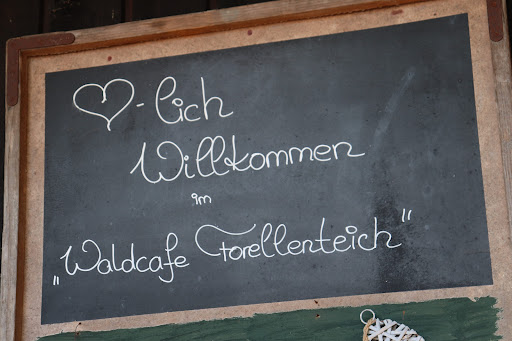 ♡-lich
Willkommen
im
„Waldcafe Forellenteich“